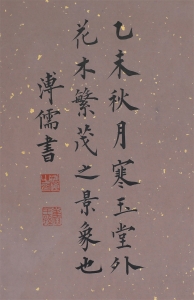 乙未秋月寒玉堂外
花木繁茂之景象也
溥儒書